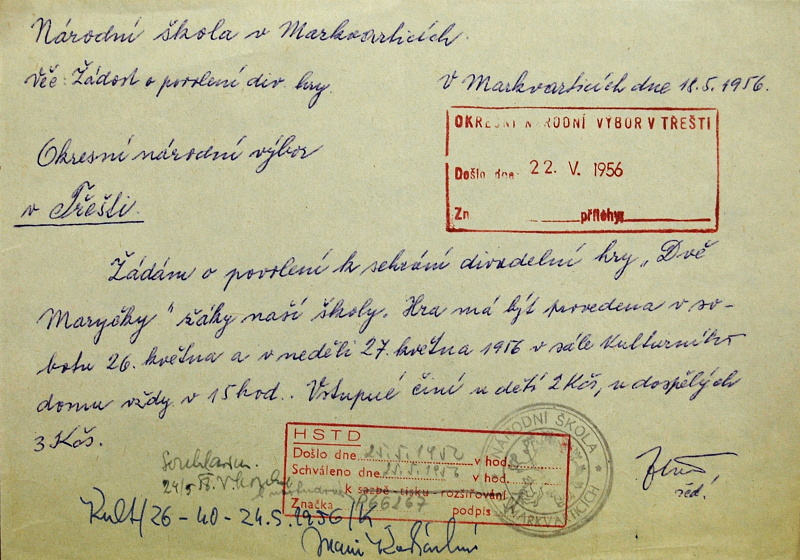 Národní škola v Markvarticích.
Věc: Žádost o povolení div. hry.
V Markvarticích dne 18.5.1956.
OKRESNÍ NÁRODNÍ VÝBOR V TŘEŠTI
Došlo dne: 22. V. 1956
Zn přílohy
Okresní národní výbor
v Třešti.
Žádám o povolení k sehrání divadelní hry „Dvě
Maryčky" žáky naší školy. Hra má být provedena v so-
botu 26. května a v neděli 27. května 1956 v sále Kulturního
domu vždy v 15 hod.. Vstupné činí u dětí 2 Kčs, u dospělých
3 Kčs.
HSTD
Došlo dne 25.5.1956 v hod.
Schváleno dne 25.5.1956 v hod.
k sazbě - tisku - rozšiřování
Značka podpis
NÁRODNÍ ŠKOLA
V MARKVARTICÍCH
Souhlasím.
24/5
řed.
Kult/26-40-24.5.1956/K